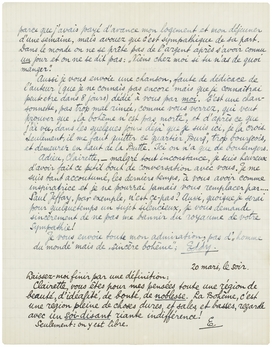 parce que j'avais payé d'avance mon logement et mon déjeuner
d'une semaine, mais avouez que c'est sympathique de sa part.
Dans le monde on ne se prête pas de l'argent après s'avoir connu
un jour et on ne se dit pas: Viens chez moi si tu n'as de quoi
manger!
Aussi je vous envoie une chanson, faute de dédicace de
l'auteur (que je ne connais pas encore mais que je connaîtrai
peut-être dans 8 jours) dédié à vous par moi. C'est une chan-
sonnette, pas trop mal rimée, comme vous verrez, vous prou-
vant que "la bohème n'est pas morte", et d'après ce que
j'ai vu, dans les quelques jours déjà que je suis ici, je la crois.
Seulement il me faut quitter ce quartier Pourf, trop bourgeois,
et demeurer en haut de la Butte. Ici on n'a que de boulangers.
Adieu, Clairette,— malgré tout inconstance, je suis heureux
d'avoir fait ce petit bout de conversation avec vous. Je me
suis tant accoutumé, les derniers temps, à vous avoir comme
inspiratrice et je ne pourrai jamais vous remplacer par —
Paul Géfry, par exemple, n'est-ce pas? Aussi, quoique je serai
pour quelque temps un sujet silencieux, je vous demande
sincèrement de ne pas me bannir du royaume de votre
Sympathie!
Je vous envoie toute mon admiration pas d'"homme
du monde" mais de "sincère bohème",
20 mars, le soir.
Laissez-moi finir par une définition:
Clairette, vous êtes pour mes pensées toute une région de
beauté, d'idéalité, de bonté, de noblesse. La Bohème, c'est
une région pleine de choses dures, et sales et basses, regardé
avec un soi-disant riante indifférence!
Seulement: on y est libre.
E.